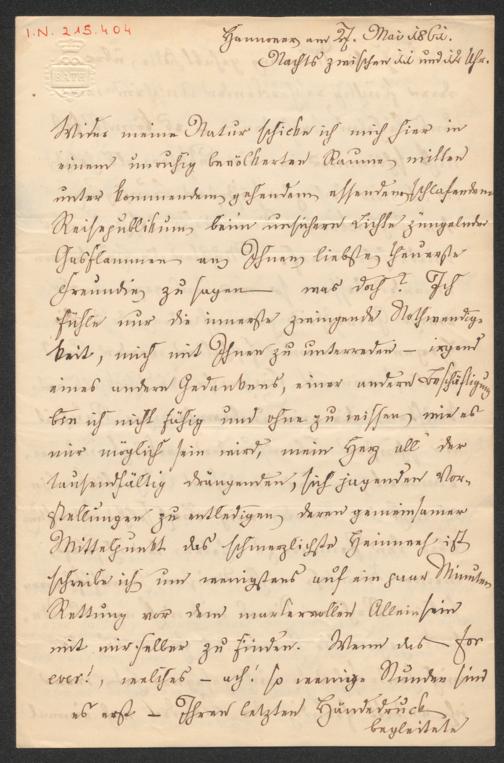 I.N. 215.404
BATH
Hannover am 27. Mai 1861.
Nachts zwischen 11 und 12 Uhr.
Wider meine Natur schicke ich mich hier in
einem unruhig bevölkerten Raume, mitten
unter kommendem, gehendem, essendem, schlafendem
Reisepublikum beim unsichern Lichte züngelnder
Gasflammen an, Ihnen, liebste, theuerste
Freundin, zu sagen — was doch? Ich
fühle nur die innerste zwingende Nothwendig-
keit, mich mit Ihnen zu unterreden — irgend
eines andern Gedankens, einer andern Beschäftigung
bin ich nicht fähig und ohne zu wissen, wie es
mir möglich sein wird, mein Herz all' der
tausendfältig drängenden, sich jagenden Vor-
stellungen zu entledigen, deren gemeinsamer
Mittelpunkt das schmerzlichste Heimweh ist
schreibe ich um wenigstens auf ein paar Minuten
Rettung vor dem martervollen Alleinsein
mit mir selber zu finden. Wenn das — for
ever!, welches — ach! so wenige Stunden sind
es erst — Ihren letzten Händedruck
begleitete